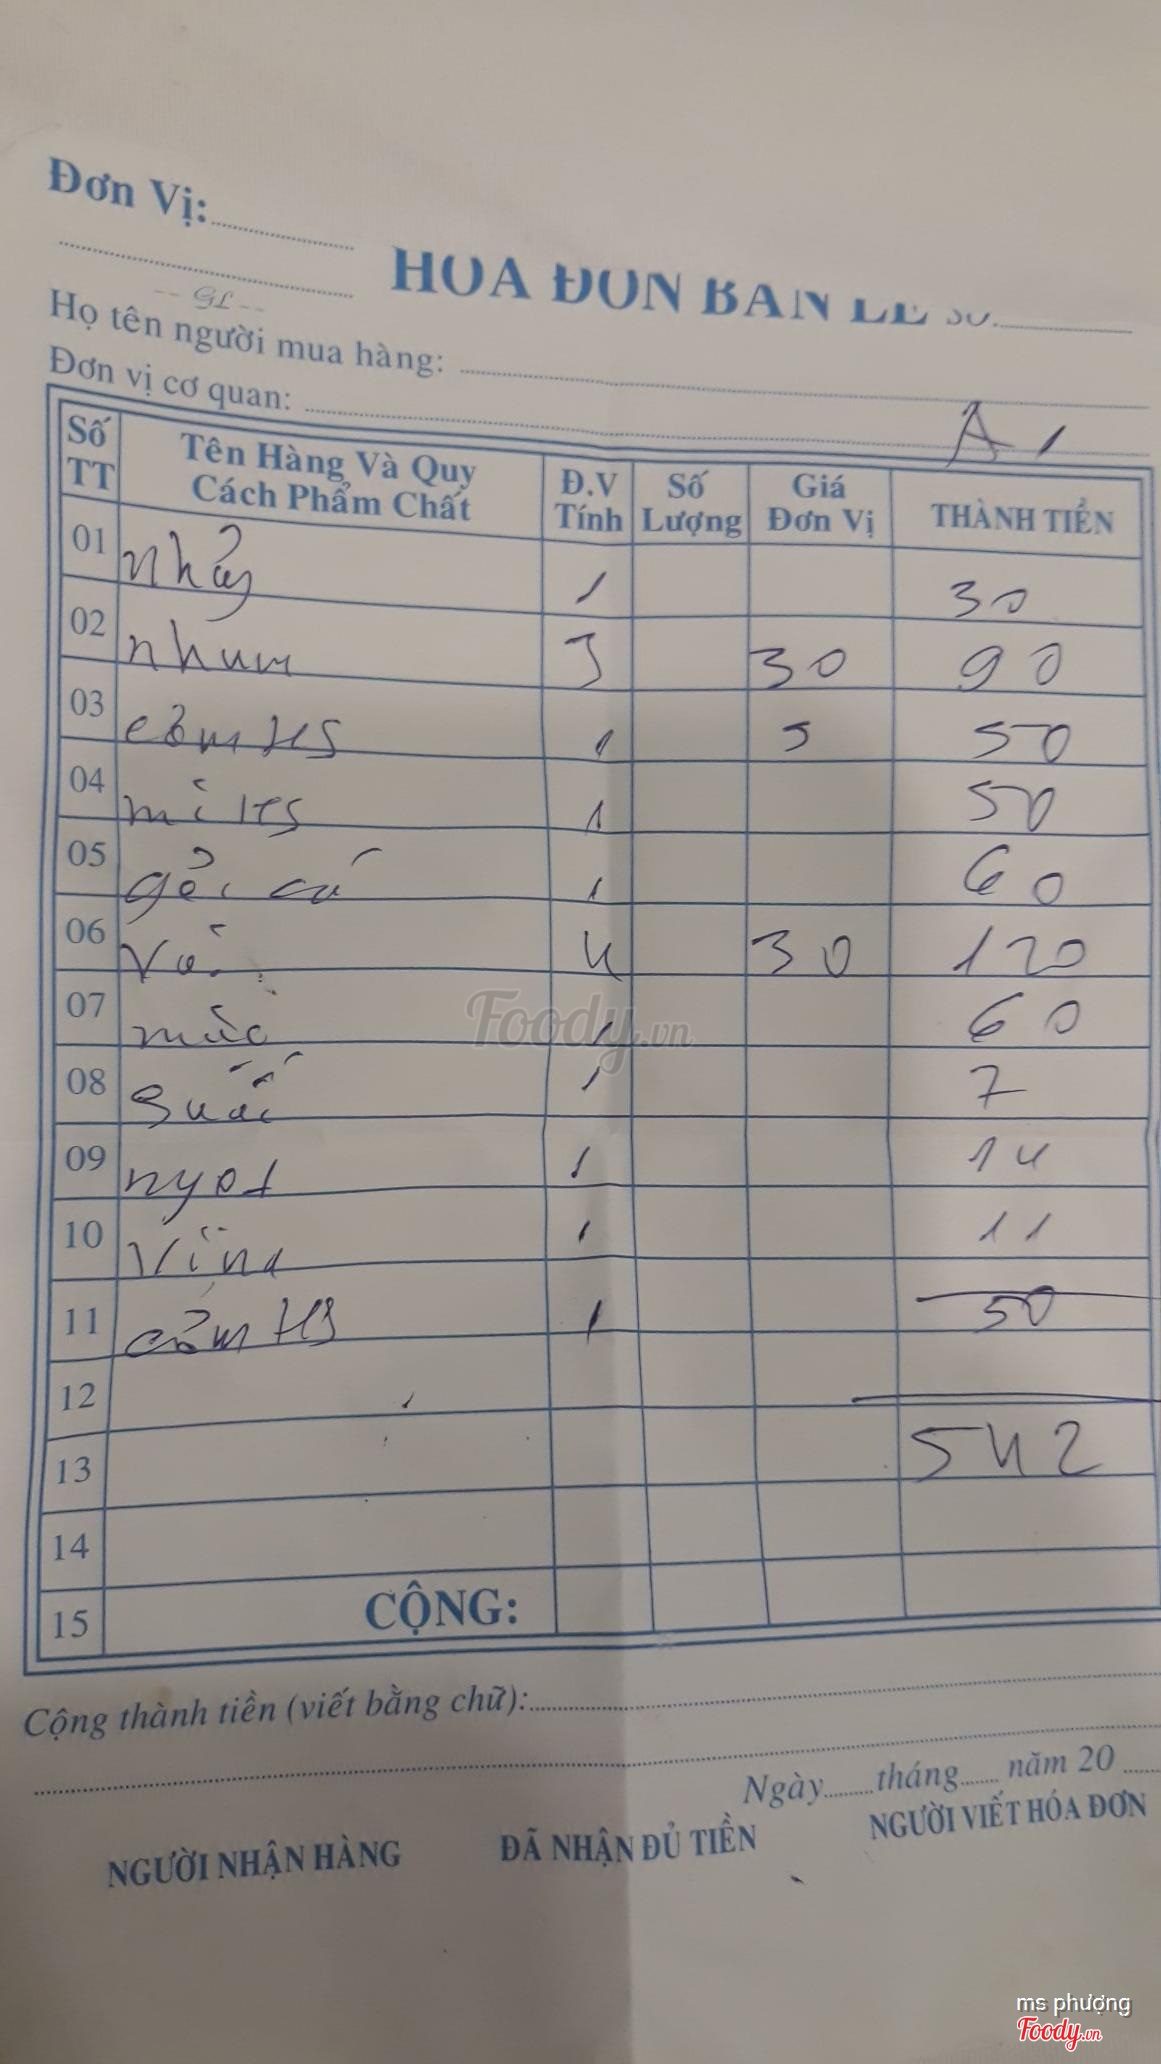 Đơn Vị:
HÓA ĐƠN BÁN LẺ Số:
GL
Họ tên người mua hàng:
Đơn vị cơ quan:
A1
Số TT Tên Hàng Và Quy Cách Phẩm Chất Đ.V Tính Số Lượng Giá Đơn Vị THÀNH TIỀN
01 nhảy 1 30
02 nhum 3 30 90
03 cơm HS 1 5 50
04 mì HS 1 50
05 gỏi cá 1 60
06 Vú 4 30 120
07 mực 1 60
08 Suối 1 7
09 ngọt 1 14
10 Vina 1 11
11 cơm HS 1 50
12
13 542
14
15 CỘNG:
Foody.vn
Cộng thành tiền (viết bằng chữ):
Ngày tháng năm 20
NGƯỜI NHẬN HÀNG ĐÃ NHẬN ĐỦ TIỀN NGƯỜI VIẾT HÓA ĐƠN
ms phượng
Foody.vn